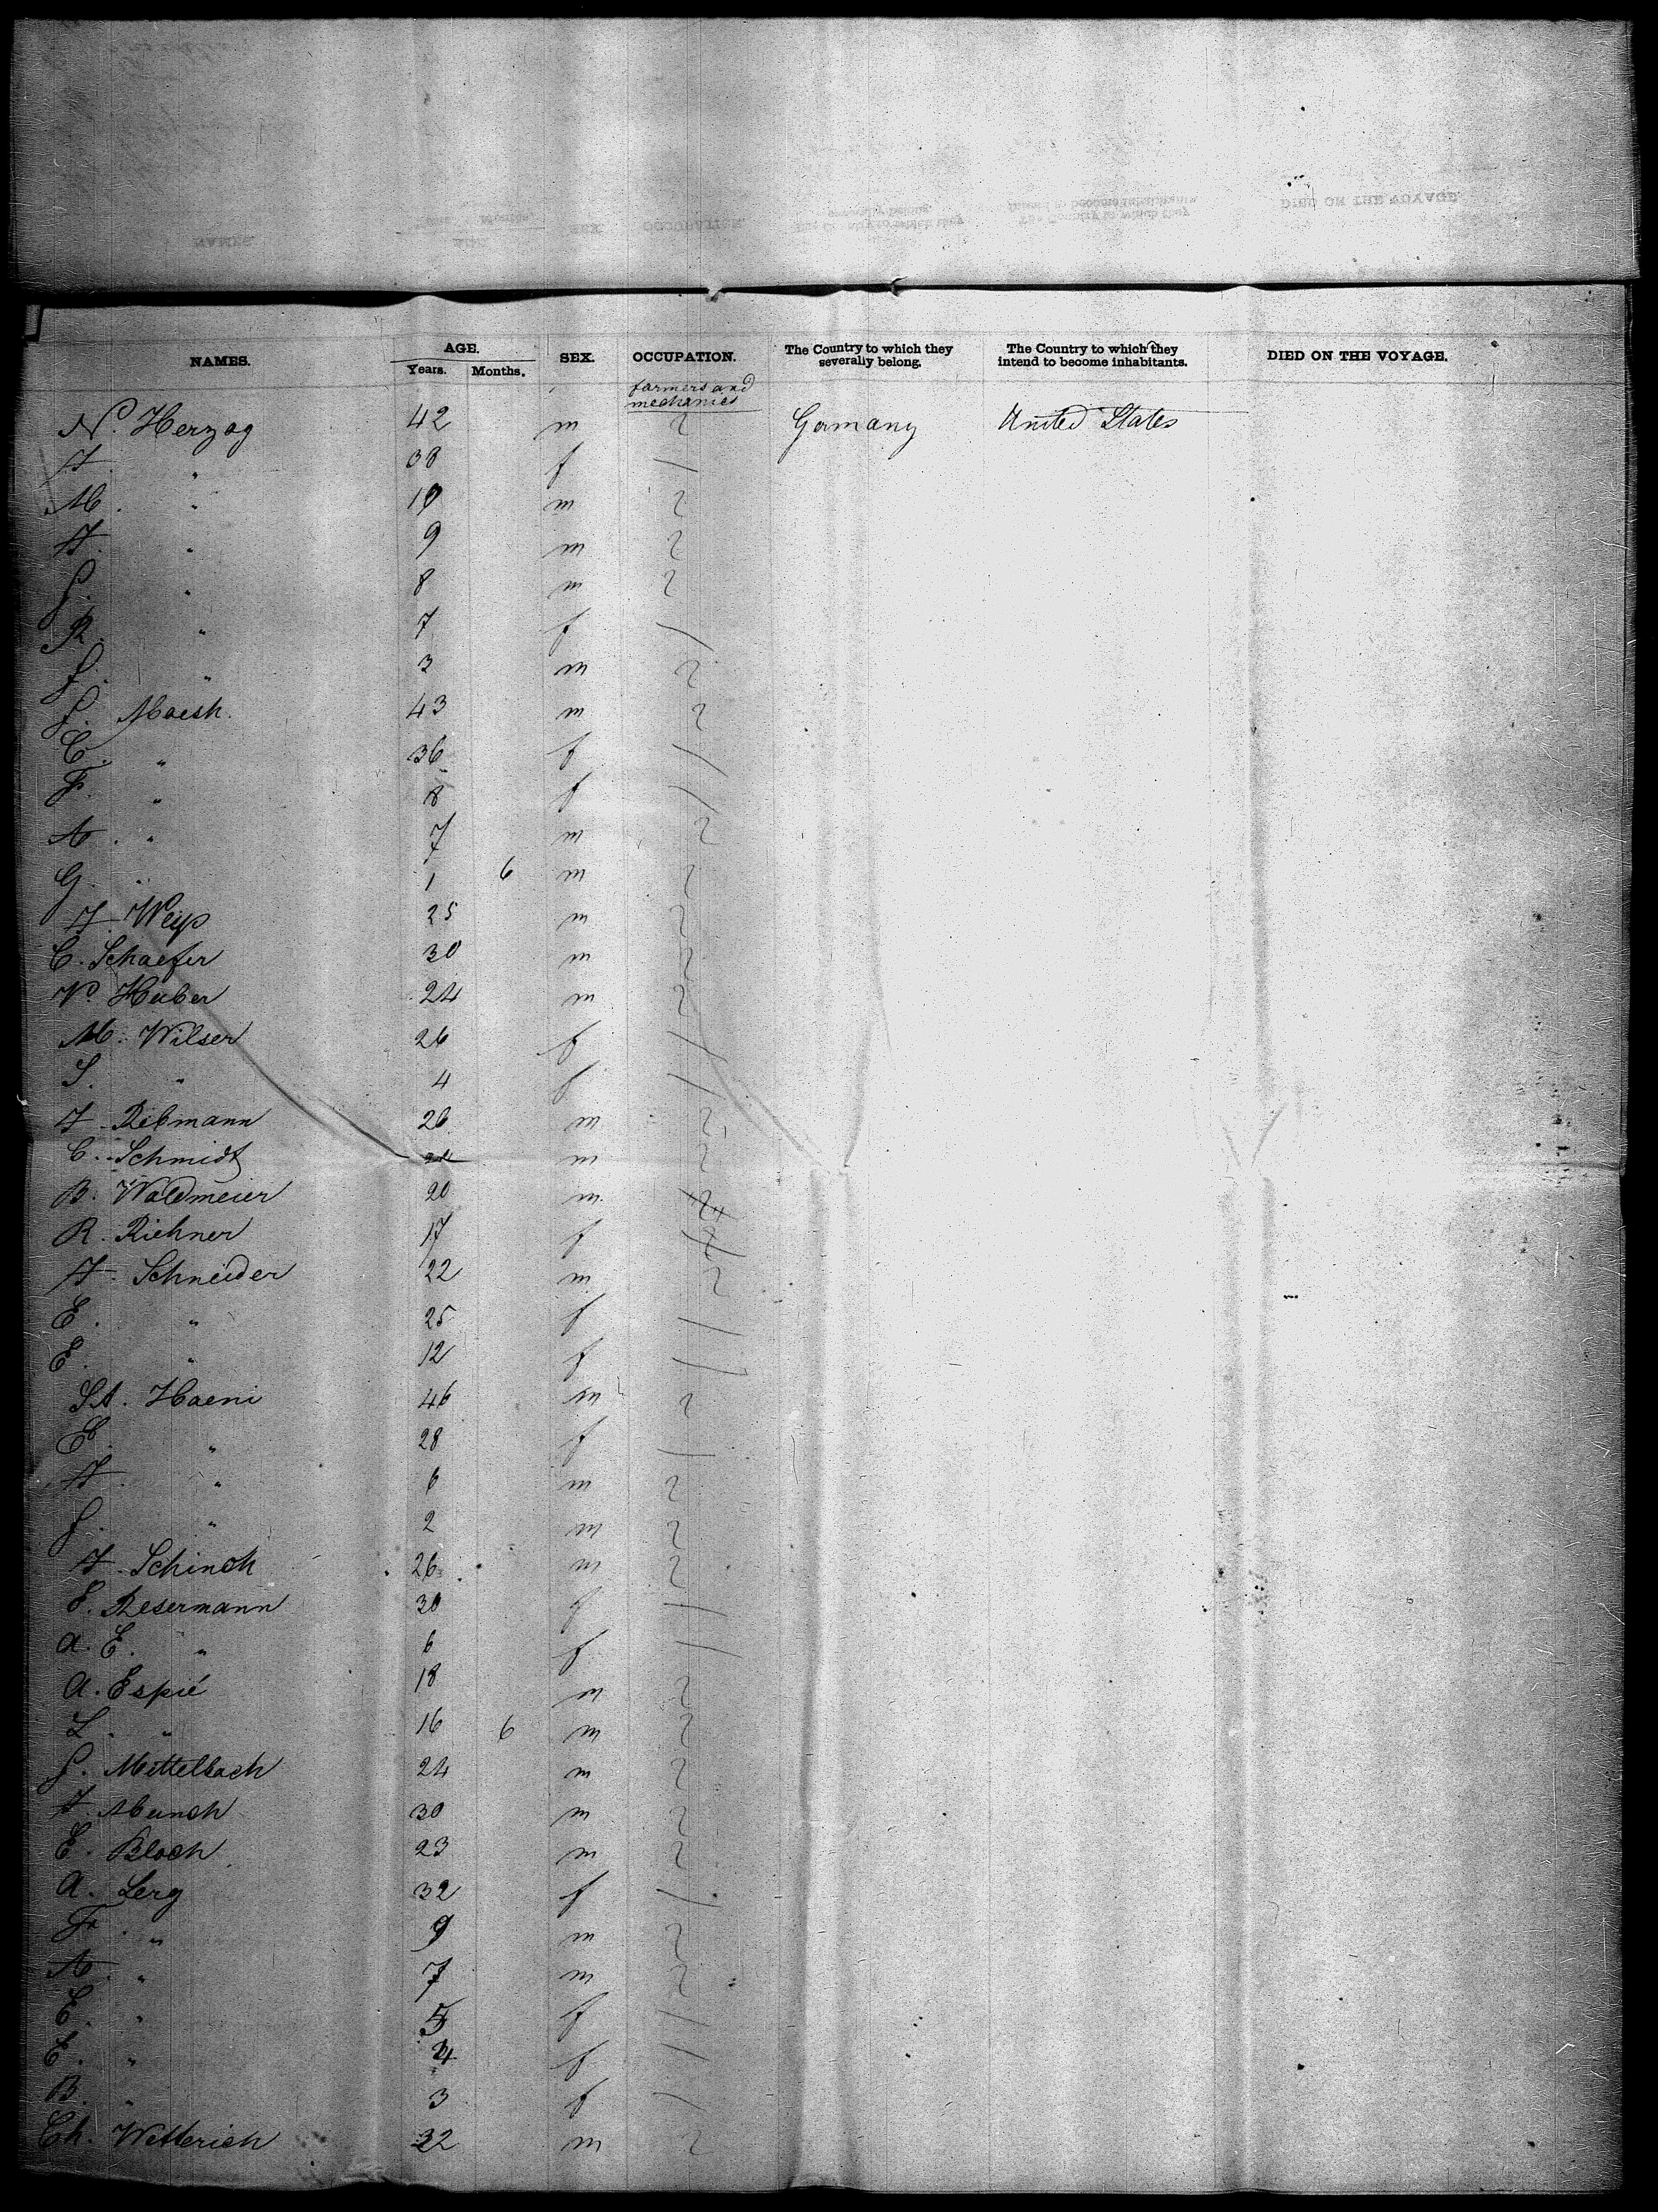 NAMES. AGE. Years. Months. SEX. OCCUPATION. The Country to which they severally belong. The Country to which they intend to become inhabitants. DIED ON THE VOYAGE.
farmers and mechanics
N. Herzog 42 m Germany United States
" 38 f
M. " 10 m
" 9 m
" 8 m
R. " 7 f
" 3 m
Maesh. 43 m
C. " 36 f
F. " 8 f
A. " 7 m
G. " 1 6 m
Weiss 25 m
C. Schaefer 30 m
N. Huber 24 m
M. Wilser 26 f
S. " 4 f
Rebmann 26 m
C. Schmidt m
B. Waldmeier 20 m
R. Richner 17 f
Schneider 22 m
E. " 25 f
E. " 12 f
St. Haeni 46 m
E. " 28 f
" 6 m
" 2 m
Schinch 26 m
E. Resermann 30 f
A. E. " 6 f
A. Espié 18 m
L. " 16 6 m
Mettelbach 24 m
Munch 30 m
E. Bloch 23 m
A. Lerg 32 f
Fr. " 9 m
A. " 7 m
E. " 5 f
E. " 4 f
B. " 3 f
Ch. Wetterich 32 m